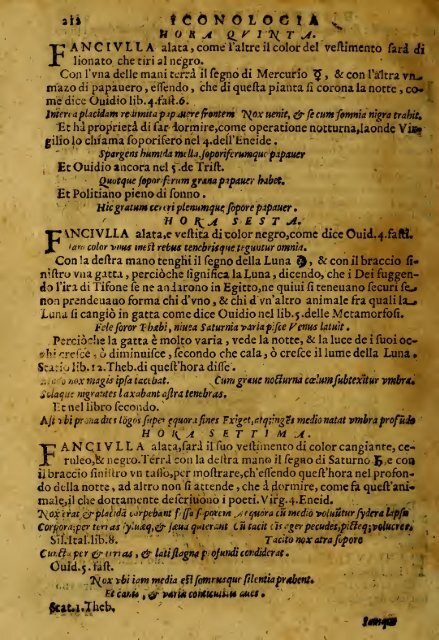 212 ICONOLOGIA
HORA QVINTA.
FANCIVLLA alata, come l'altre il color del vestimento sarà di
lionato che tiri al negro.
Con l'vna delle mani terrà il segno di Mercurio ☿, & con l'altra vn
mazo di papauero, essendo, che di questa pianta si corona la notte, co-
me dice Ouidio lib.4.fast.6.
Interea placidam redimita papauere frontem Nox uenit, & secum somnia nigra trahit.
Et hà proprietà di far dormire, come operatione notturna, laonde Vir
gilio lo chiama soporifero nel 4.dell'Eneide.
Spargens humida mella, soporiferumque papauer
Et Ouidio ancora nel 5.de Trist.
Quotque soporiferum grana papauer habet.
Et Politiano pieno di sonno.
Hic gratum cereri plenumque sopore papauer.
HORA SESTA.
FANCIVLLA alata, e vestita di color negro, come dice Ouid.4.fast.
Iam color vnus inest rebus tenebrisque teguntur omnia.
Con la destra mano tenghi il segno della Luna , & con il braccio si-
nistro vna gatta, perciòche significa la Luna, dicendo, che i Dei fuggen-
do l'ira di Tifone se ne andarono in Egitto, ne quiui si teneuano securi se
non prendeuauo forma chi d'vno, & chi d'vn'altro animale fra quali la
Luna si cangiò in gatta come dice Ouidio nel lib.5.delle Metamorfosi.
Fele soror Phæbi, niuea Saturnia vacca pisce Venus latuit.
Perciòche la gatta è molto varia, vede la notte, & la luce de i suoi oc-
chi cresce, ò diminuisce, secondo che cala, ò cresce il lume della Luna.
Statio lib.12.Theb.di quest'hora disse.
nox magis ipsa tacebat. Cum graue nocturna cælum subtexitur vmbra.
Solaque nigrantes laxabant astra tenebras.
Et nel libro secondo.
Ast vbi prona dies super equora fines Exiget, atq; ingẽs medio natat vmbra profũdo
HORA SETTIMA.
FANCIVLLA alata, sarà il suo vestimento di color cangiante, ce-
ruleo, & negro. Terrà con la destra mano il segno di Saturno ♄, e con
il braccio sinistro vn tasso, per mostrare, ch'essendo quest'hora nel profon-
do della notte, ad altro non si attende, che à dormire, come fa quest'ani-
male, il che dottamente descriuono i poeti. Virg.4.Eneid.
Nox erat & placidũ carpebant fessa soporem Aequora cũ medio voluũtur sydera lapsu
Corpora per terras syluæq; & sæua quierant Cũ tacit ager pecudes, pictæq; volucres.
Sil.Ital.lib.8. Tacito nox atra sopore
Cuncta per & terras, & lati stagna profundi condiderat.
Ouid.5.fast.
Nox vbi iam media est somnusque silentia præbent.
Et canis, & variæ conticuistis aues.
Stat.1.Theb.
Iamque